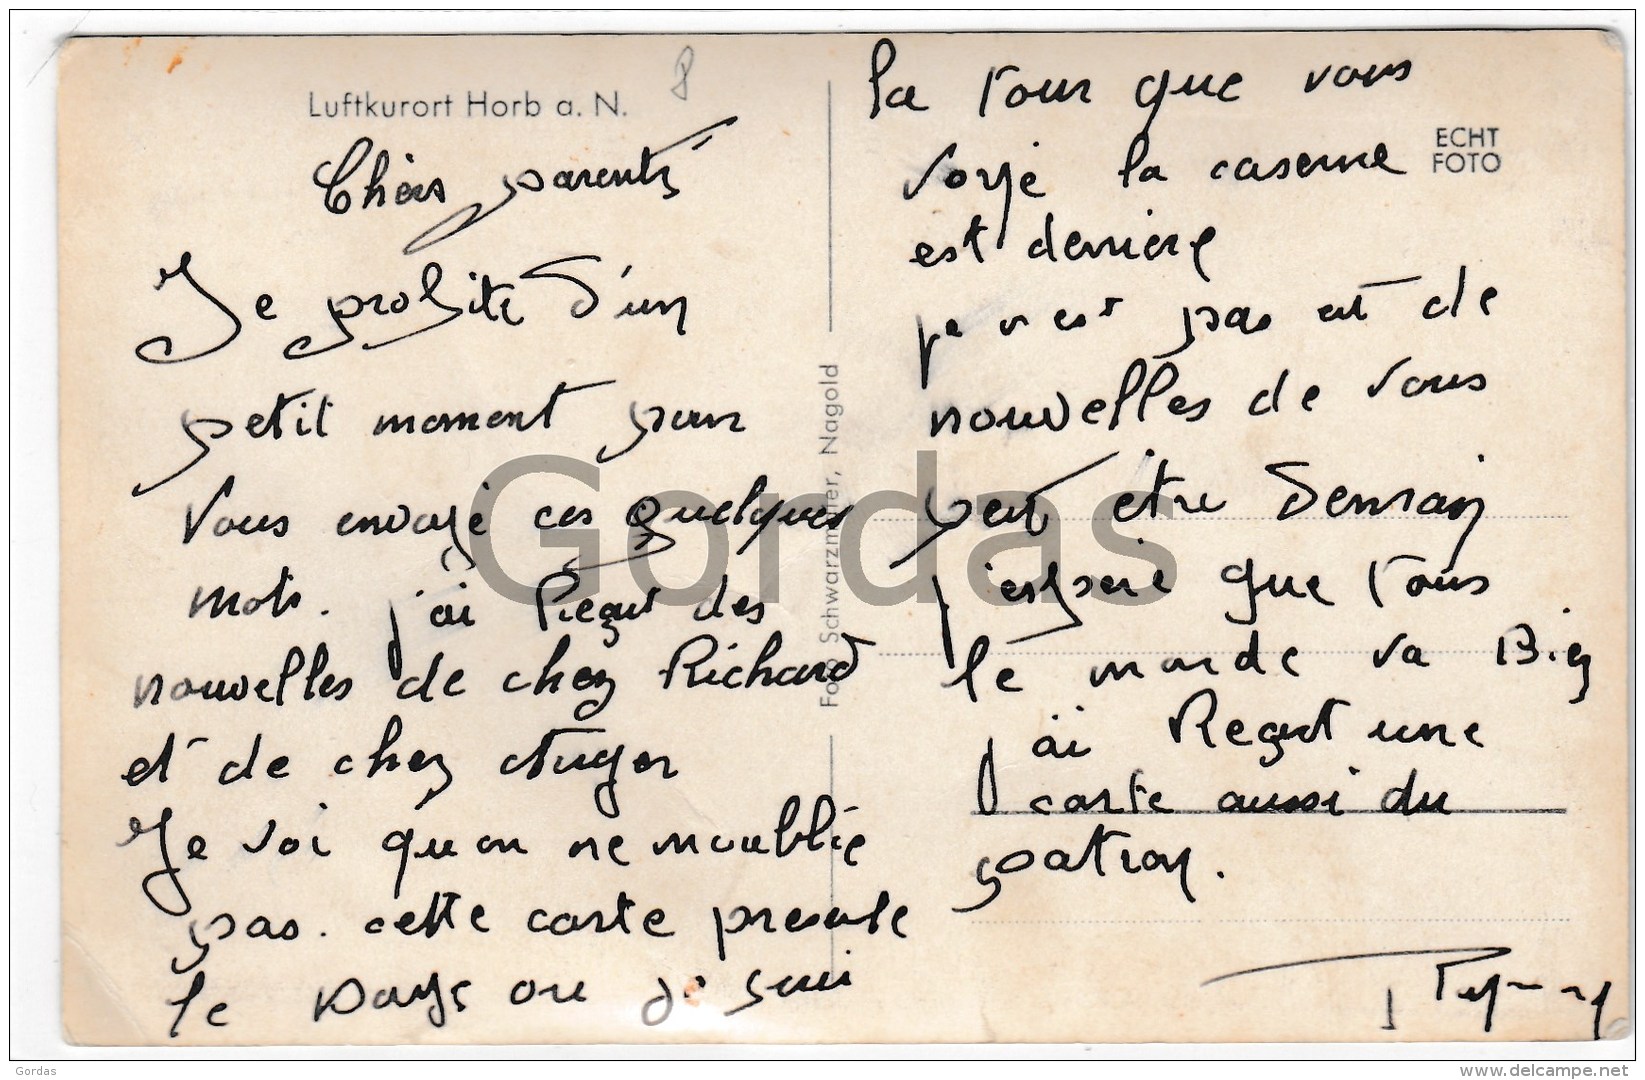 Luftkurort Horb a. N.
8
Chers parents
Je profite d'un
petit moment pour
vous envoyé ces quelques
mots. j'ai Reçut des
nouvelles de chez Richard
et de chez Auger
Je voi qu'on ne m'oublie
pas. cette carte presente
le pays ou je sui
la tour que vous
voyé la caserne
est derriere
je n'est pas eut de
nouvelles de vous
peut être demain
j'espere que tous
le monde va Bien
j'ai Reçut une
carte aussi du
patron.
ECHT
FOTO
Foto Schwarzmaier, Nagold
Gordas
Gordas
www.delcampe.net